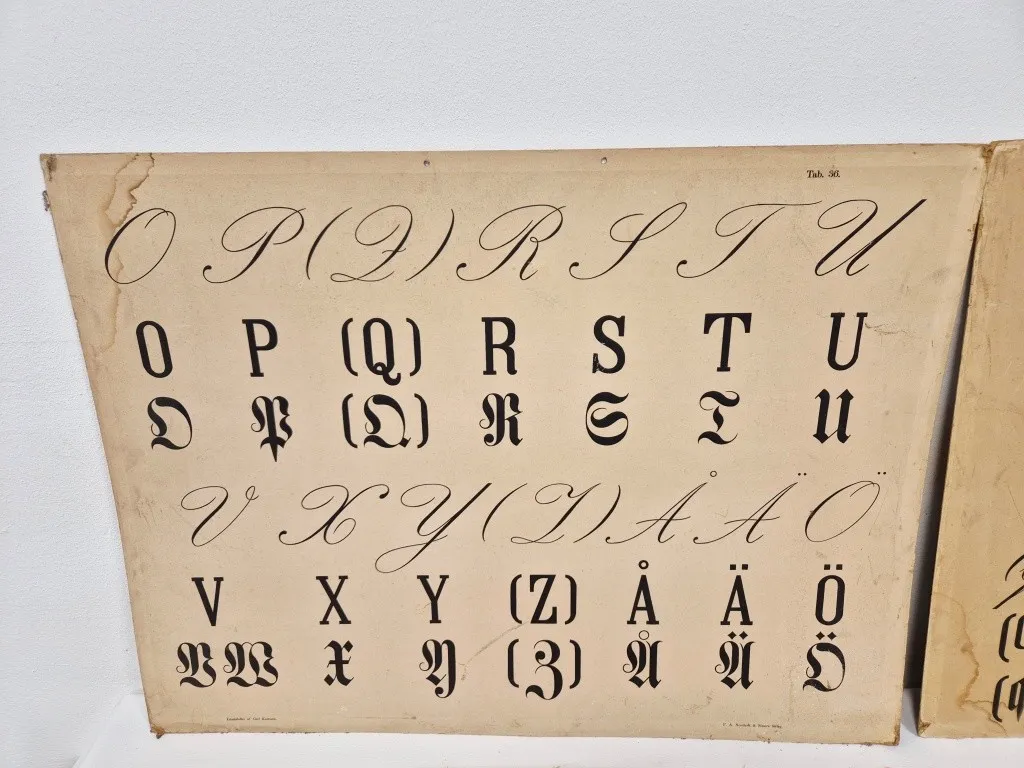 Tab. 36.
O P (Q) R S T U
O P (Q) R S T U
O P (Q) R S T U
V X Y (Z) Å Ä Ö
V X Y (Z) Å Ä Ö
V W X Y (Z) Å Ä Ö